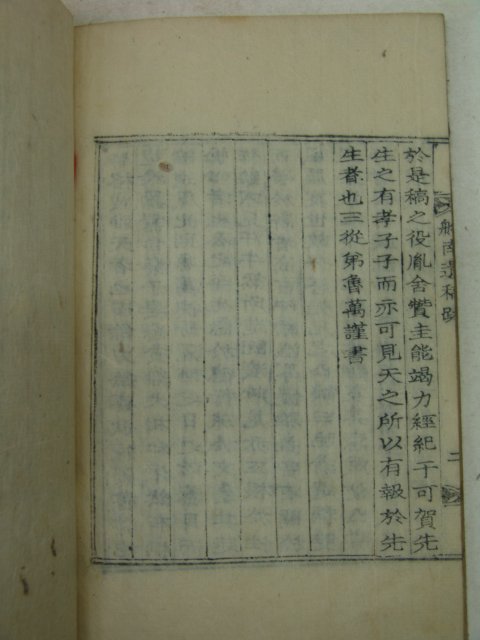 於是稿之役胤舍贊圭能竭力經紀于可賀先
生之有孝子子而亦可見天之所以有報於先
生者也三從弟魯萬謹書
南遺稿
二